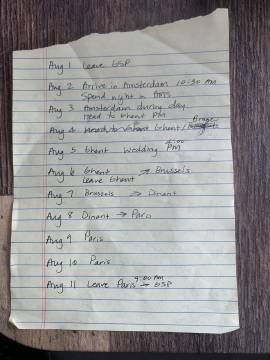 Aug 1 Leave GSP
Aug 2 Arrive in Amsterdam 10:30 AM
Spend night in AMS
Aug 3 Amsterdam during day
Head to Ghent PM
Aug 4 Ghent/
Aug 5 Ghent Wedding 2:00 PM
Aug 6 Ghent → Brussels
Leave Ghent
Aug 7 Brussels → Dinant
Aug 8 Dinant → Paris
Aug 9 Paris
Aug 10 Paris
Aug 11 Leave Paris 9:00 AM → GSP